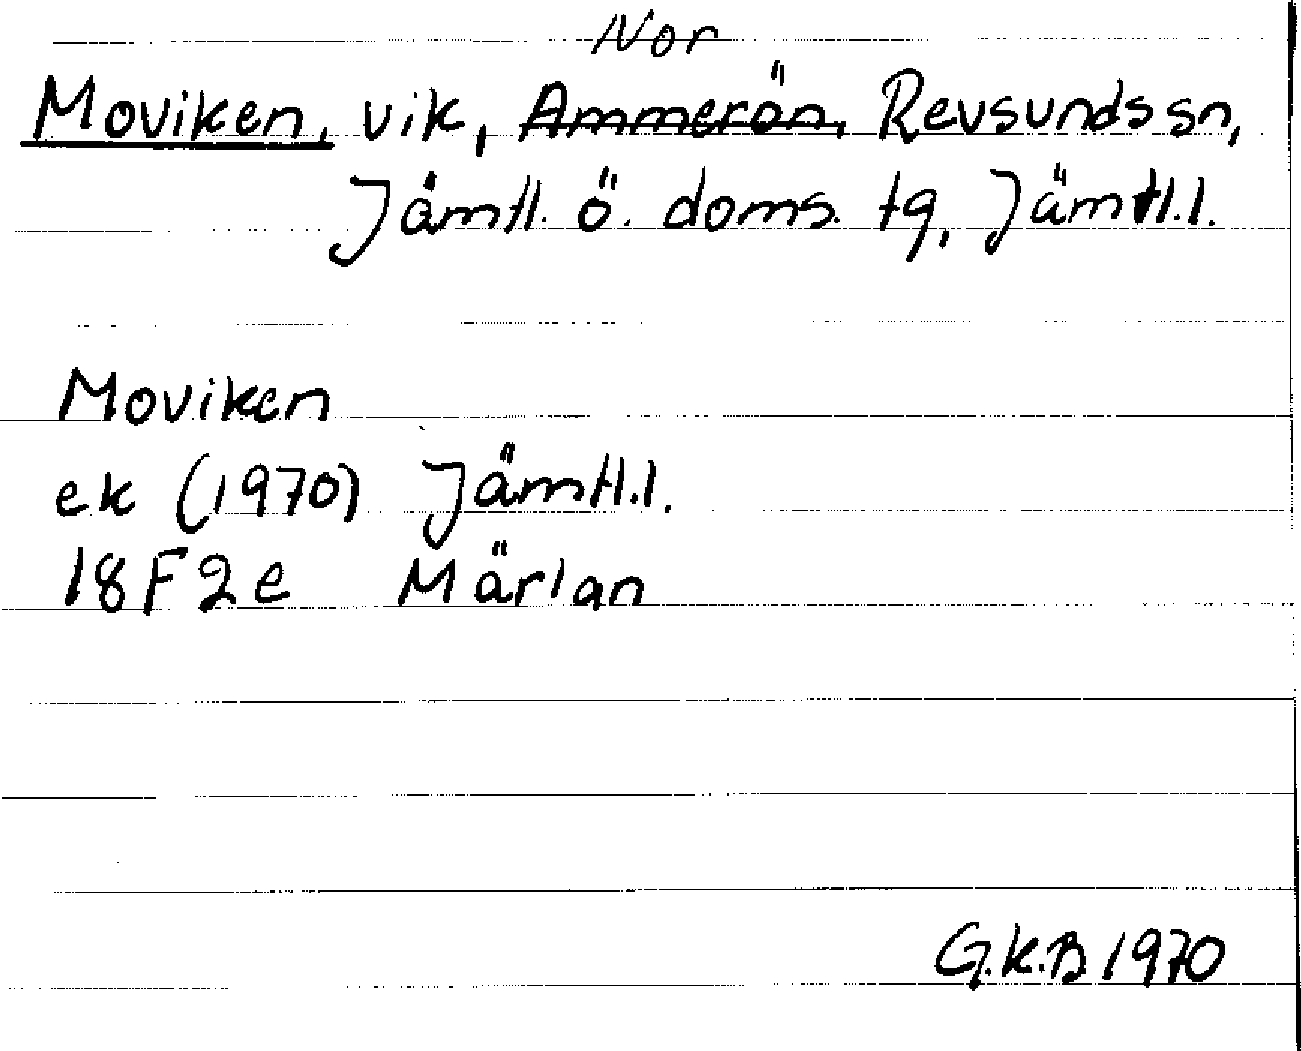 Nor
Moviken, vik, Ammerön, Revsunds sn,
Jämtl. ö. doms. tg, Jämtl.l.
Moviken
ek (1970) Jämtl.l.
18F2e Märlan
G.K.B 1970